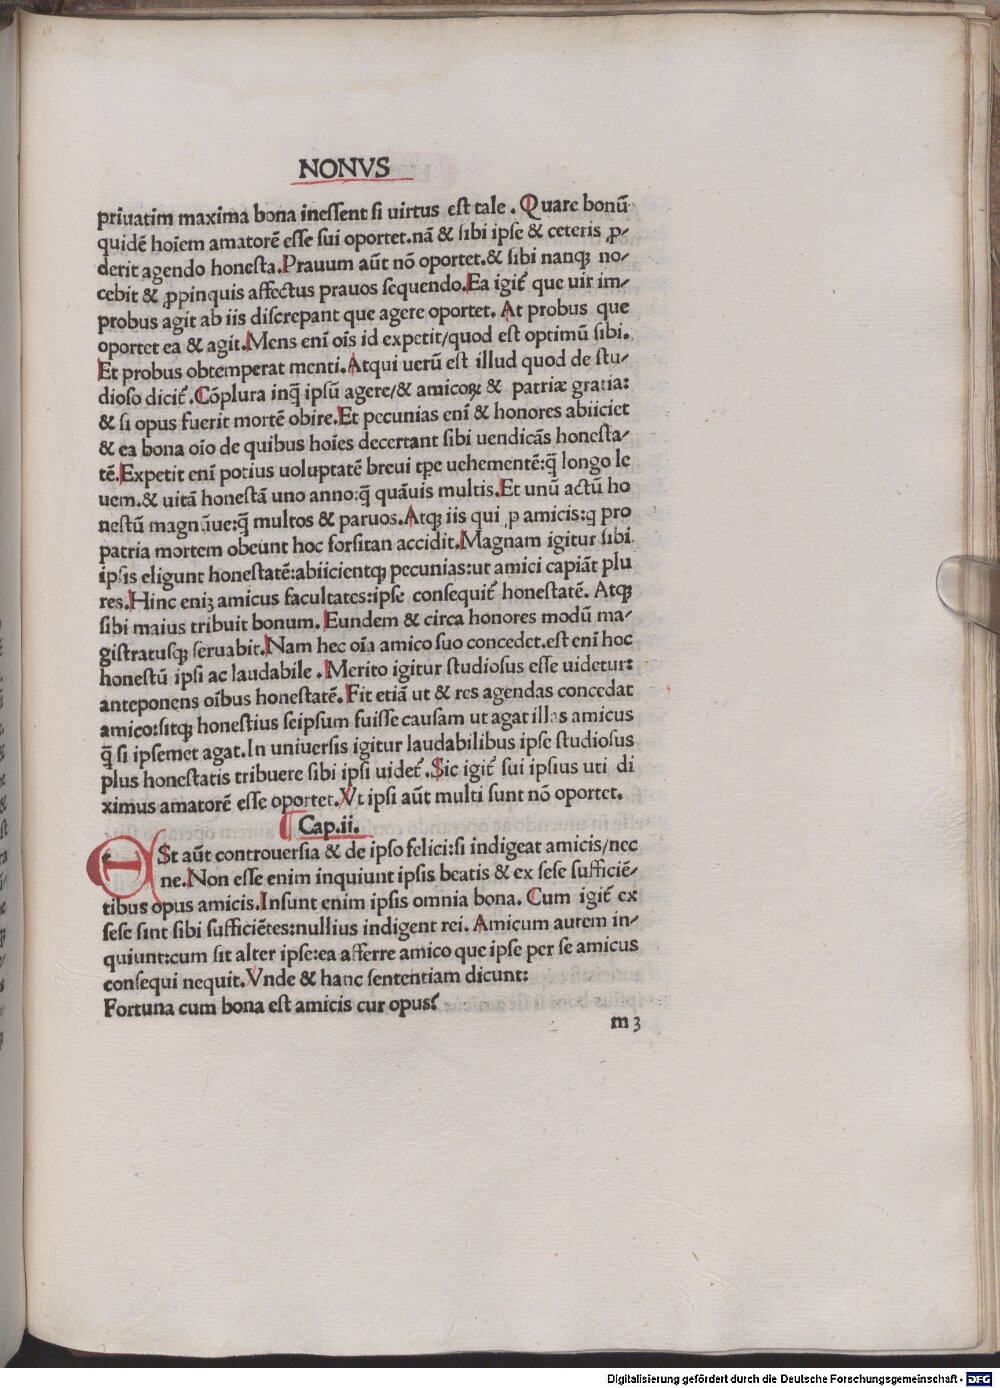 NONVS
priuatim maxima bona inessent si uirtus est tale . Quare bonū
quidē hoiem amatorē esse sui oportet.nā & sibi ipse & ceteris ꝓ-
derit agendo honesta.Prauum aūt nō oportet.& sibi nanqꝫ no-
cebit & ꝓpinquis affectus prauos sequendo.Ea igit᷑ que uir im-
probus agit ab iis discrepant que agere oportet. At probus que
oportet ea & agit.Mens enī ois id expetit/quod est optimū sibi.
Et probus obtemperat menti.Atqui uerū est illud quod de stu-
dioso dicit᷑ .Cōplura inq̄ ipsū agere/& amicoꝝ & patriæ gratia:
& si opus fuerit mortē obire.Et pecunias enī & honores abiiciet
& ea bona oīo de quibus hoies decertant sibi uendicās honesta-
tē.Expetit enī potius uoluptatē breui tꝑe uehementē:q̄ longo le
uem.& uitā honestā uno anno:q̄ quāuis multis.Et unū actū ho
nestū magnāue:q̄ multos & paruos.Atqꝫ iis qui ꝓ amicis:q pro
patria mortem obeunt hoc forsitan accidit.Magnam igitur sibi
ipsis eligunt honestatē:abiicientqꝫ pecunias:ut amici capiāt plu
res.Hinc eniꝫ amicus facultates:ipse consequit᷑ honestatē. Atqꝫ
sibi maius tribuit bonum. Eundem & circa honores modū ma-
gistratusqꝫ seruabit.Nam hec oīa amico suo concedet.est enī hoc
honestū ipsi ac laudabile .Merito igitur studiosus esse uidetur:
anteponens oībus honestatē.Fit etiā ut & res agendas concedat
amico:sitqꝫ honestius seipsum fuisse causam ut agat illas amicus
q̄ si ipsemet agat.In uniuersis igitur laudabilibus ipse studiosus
plus honestatis tribuere sibi ipsi uidet᷑ .Sic igit᷑ sui ipsius uti di
ximus amatorē esse oportet.Vt ipsi aūt multi sunt nō oportet.
Cap.ii.
ESt aūt controuersia & de ipso felici:si indigeat amicis/nec
ne.Non esse enim inquiunt ipsis beatis & ex sese sufficiē-
tibus opus amicis.Insunt enim ipsis omnia bona. Cum igit᷑ ex
sese sint sibi sufficiētes:nullius indigent rei. Amicum autem in-
quiunt:cum sit alter ipse:ea afferre amico que ipse per se amicus
consequi nequit.Vnde & hanc sententiam dicunt:
Fortuna cum bona est amicis cur opus?
m 3
Digitalisierung gefördert durch die Deutsche Forschungsgemeinschaft - DFG